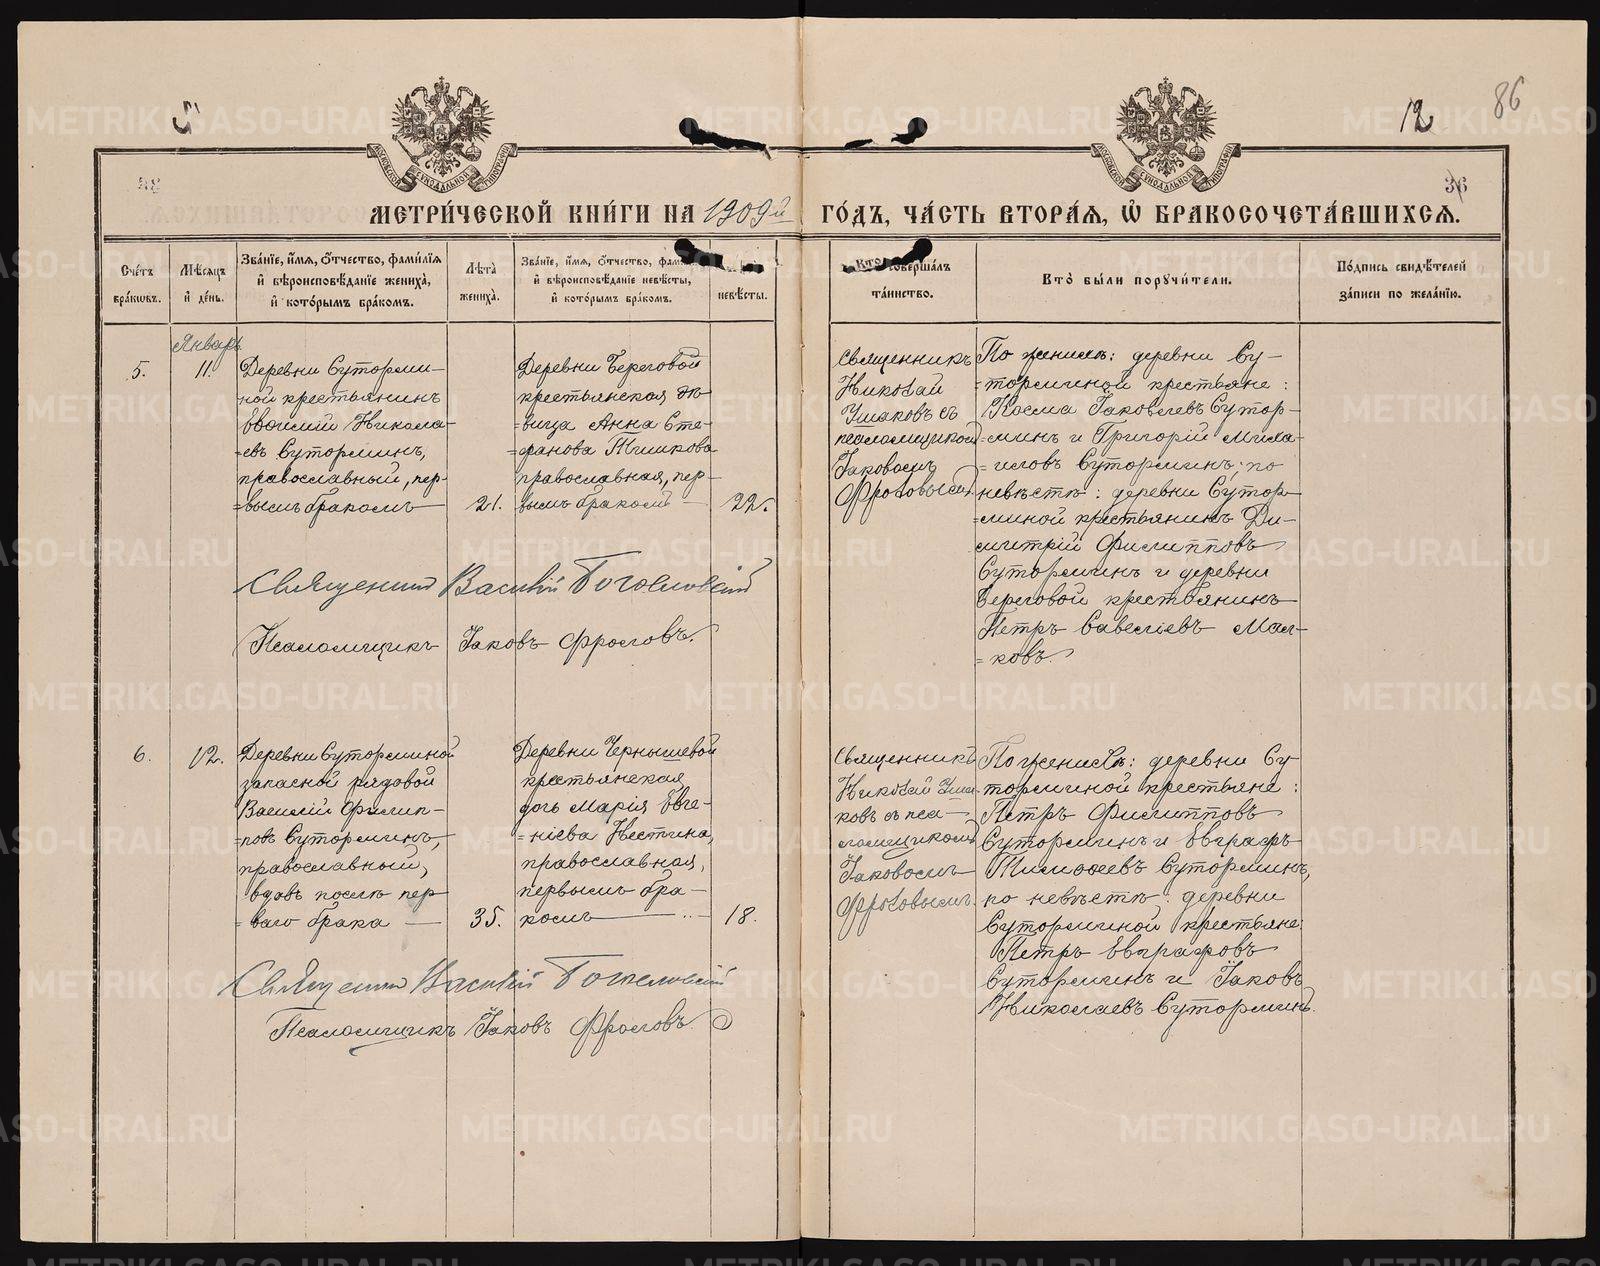 12
86
36
МЕТРИ́ЧЕСКОЙ КНИ́ГИ НА 1909й ГО́ДЪ, ЧА́СТЬ ВТОРА́Я, Ѡ҆ БРАКОСОЧЕТА́ВШИХСѦ.
Сче́тъ
бра́кѡвъ.
Мѣ́сѧцъ
и҆ де́нь.
Зва́нїе, и҆́мѧ, ѻ҆́тчество, фами́лїѧ
и҆ вѣроисповѣ́данїе жениха̀,
и҆ кото́рымъ бра́комъ.
Лѣ́та
жениха̀.
Зва́нїе, и҆́мѧ, ѻ҆́тчество,
и҆ вѣроисповѣ́данїе невѣ́сты,
и҆ кото́рымъ бра́комъ.
невѣ́сты.
Кто̀ соверша́лъ
та́инство.
Кто̀ бы́ли порꙋчи́тели.
По́дпись свидѣ́телей
за́писи по жела́нїю.
Январь
5.
11.
Деревни Сутормин-
ной крестьянинъ
Евфимій Никола-
=евъ Суторминъ,
православный, пер-
=вымъ бракомъ
21.
Деревни Береговой
крестьянская дѣ-
=вица Анна Сте-
=фанова Тишкова
православная, пер-
вымъ бракомъ
22.
Священникъ
Николай
Ушаковъ съ
псаломщикомъ
Іаковомъ
Фроловымъ
По женихѣ: деревни Су-
=торминой крестьяне:
Косма Іаковлевъ Сутор-
=минъ и Григорій Миха-
=иловъ Суторминъ; по
невѣстѣ: деревни Сутор-
=миной крестьянинъ Ди-
митрій Филипповъ
Суторминъ и деревни
Береговой крестьянинъ
Петръ Савеліевъ Мал-
=ковъ.
Священникъ Василій Богословскій
Псаломщикъ Іаковъ Фроловъ.
6.
12.
Деревни Суторминой
запасной рядовой
Василій Филип-
=повъ Суторминъ,
православный,
вдовъ послѣ пер-
=ваго брака
35.
Деревни Чернышевой
крестьянская
дочь Марія Евге-
=ніева Нестина,
православная,
первымъ бра-
комъ
18.
Священникъ
Николай Уша-
ковъ съ пса-
ломщикомъ
Іаковомъ
Фроловымъ.
По женихѣ: деревни Су-
торминой крестьяне:
Петръ Филипповъ
Суторминъ и Евграфъ
Тимофеевъ Суторминъ,
по невѣстѣ: деревни
Суторминой крестьяне:
Петръ Евграфовъ
Суторминъ и Іаковъ
Николаевъ Суторминъ.
Священникъ Василій Богословскій
Псаломщикъ Іаковъ Фроловъ.
METRIKI.GASO-URAL.RU